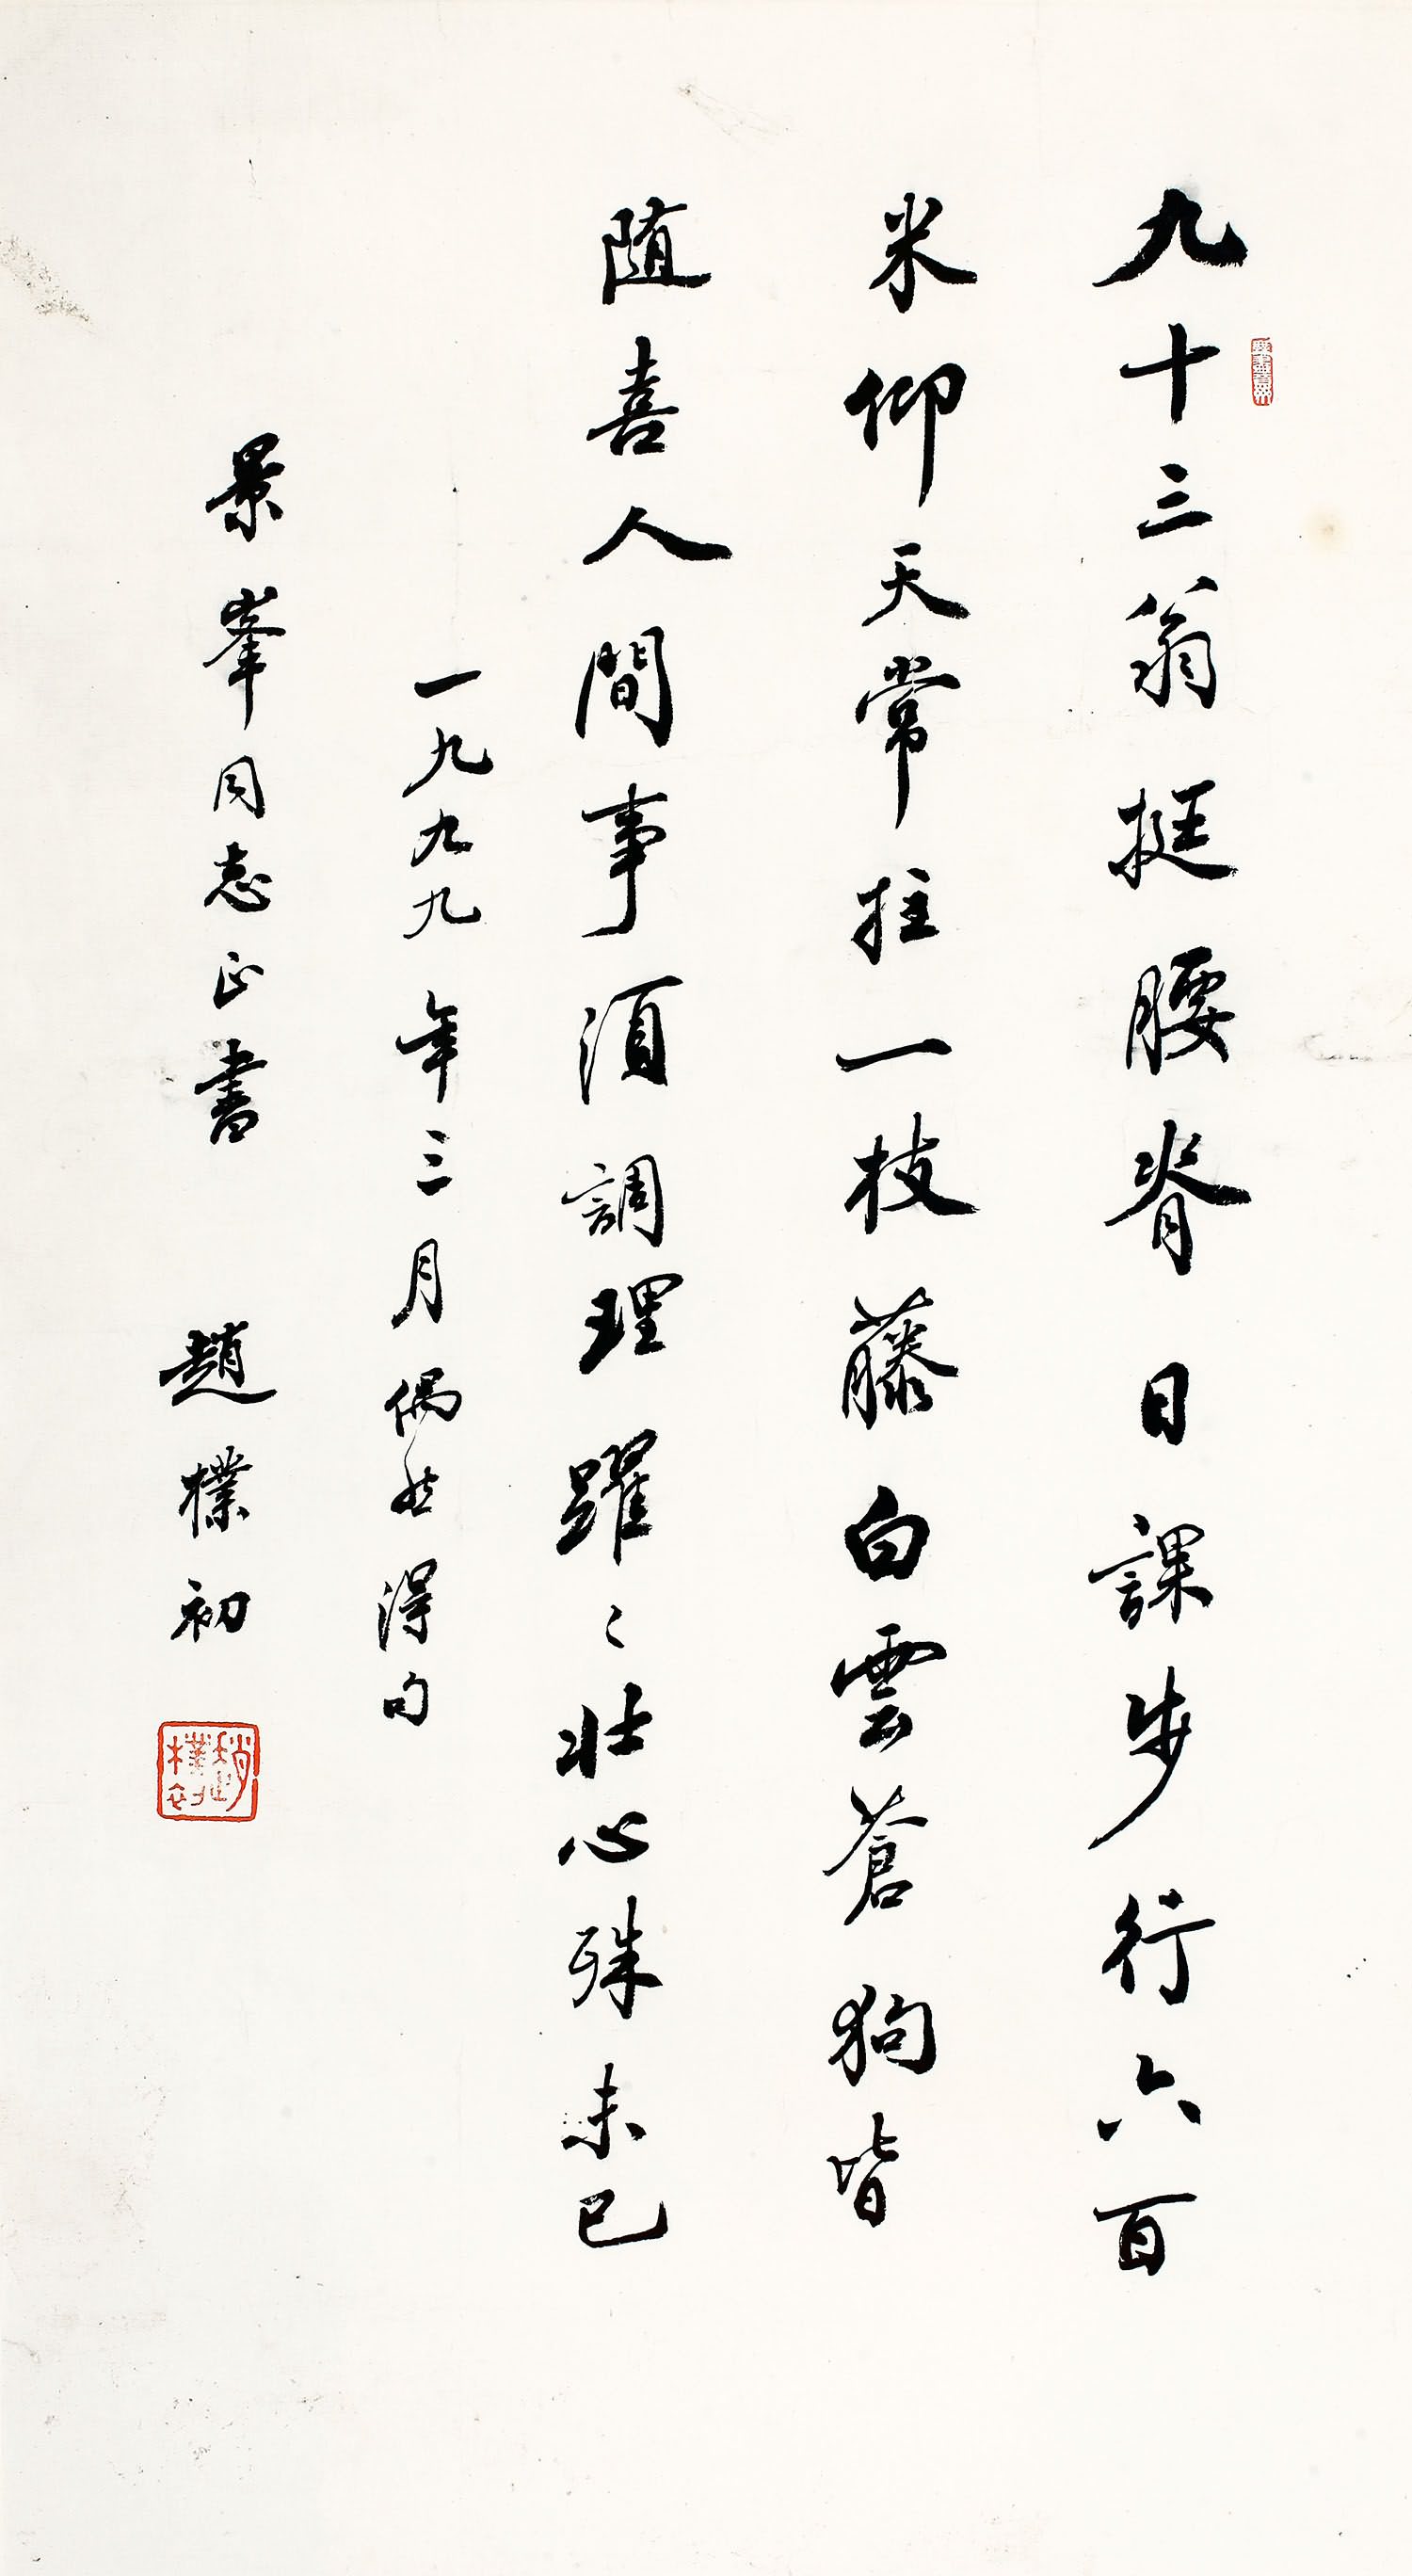 九十三翁挺腰脊日課步行六百
米仰天常拄一枝藤白雲蒼狗皆
随喜人間事須調理躍々壮心殊未已
一九九九年三月偶然得句
景峯同志正書 趙樸初
趙樸初